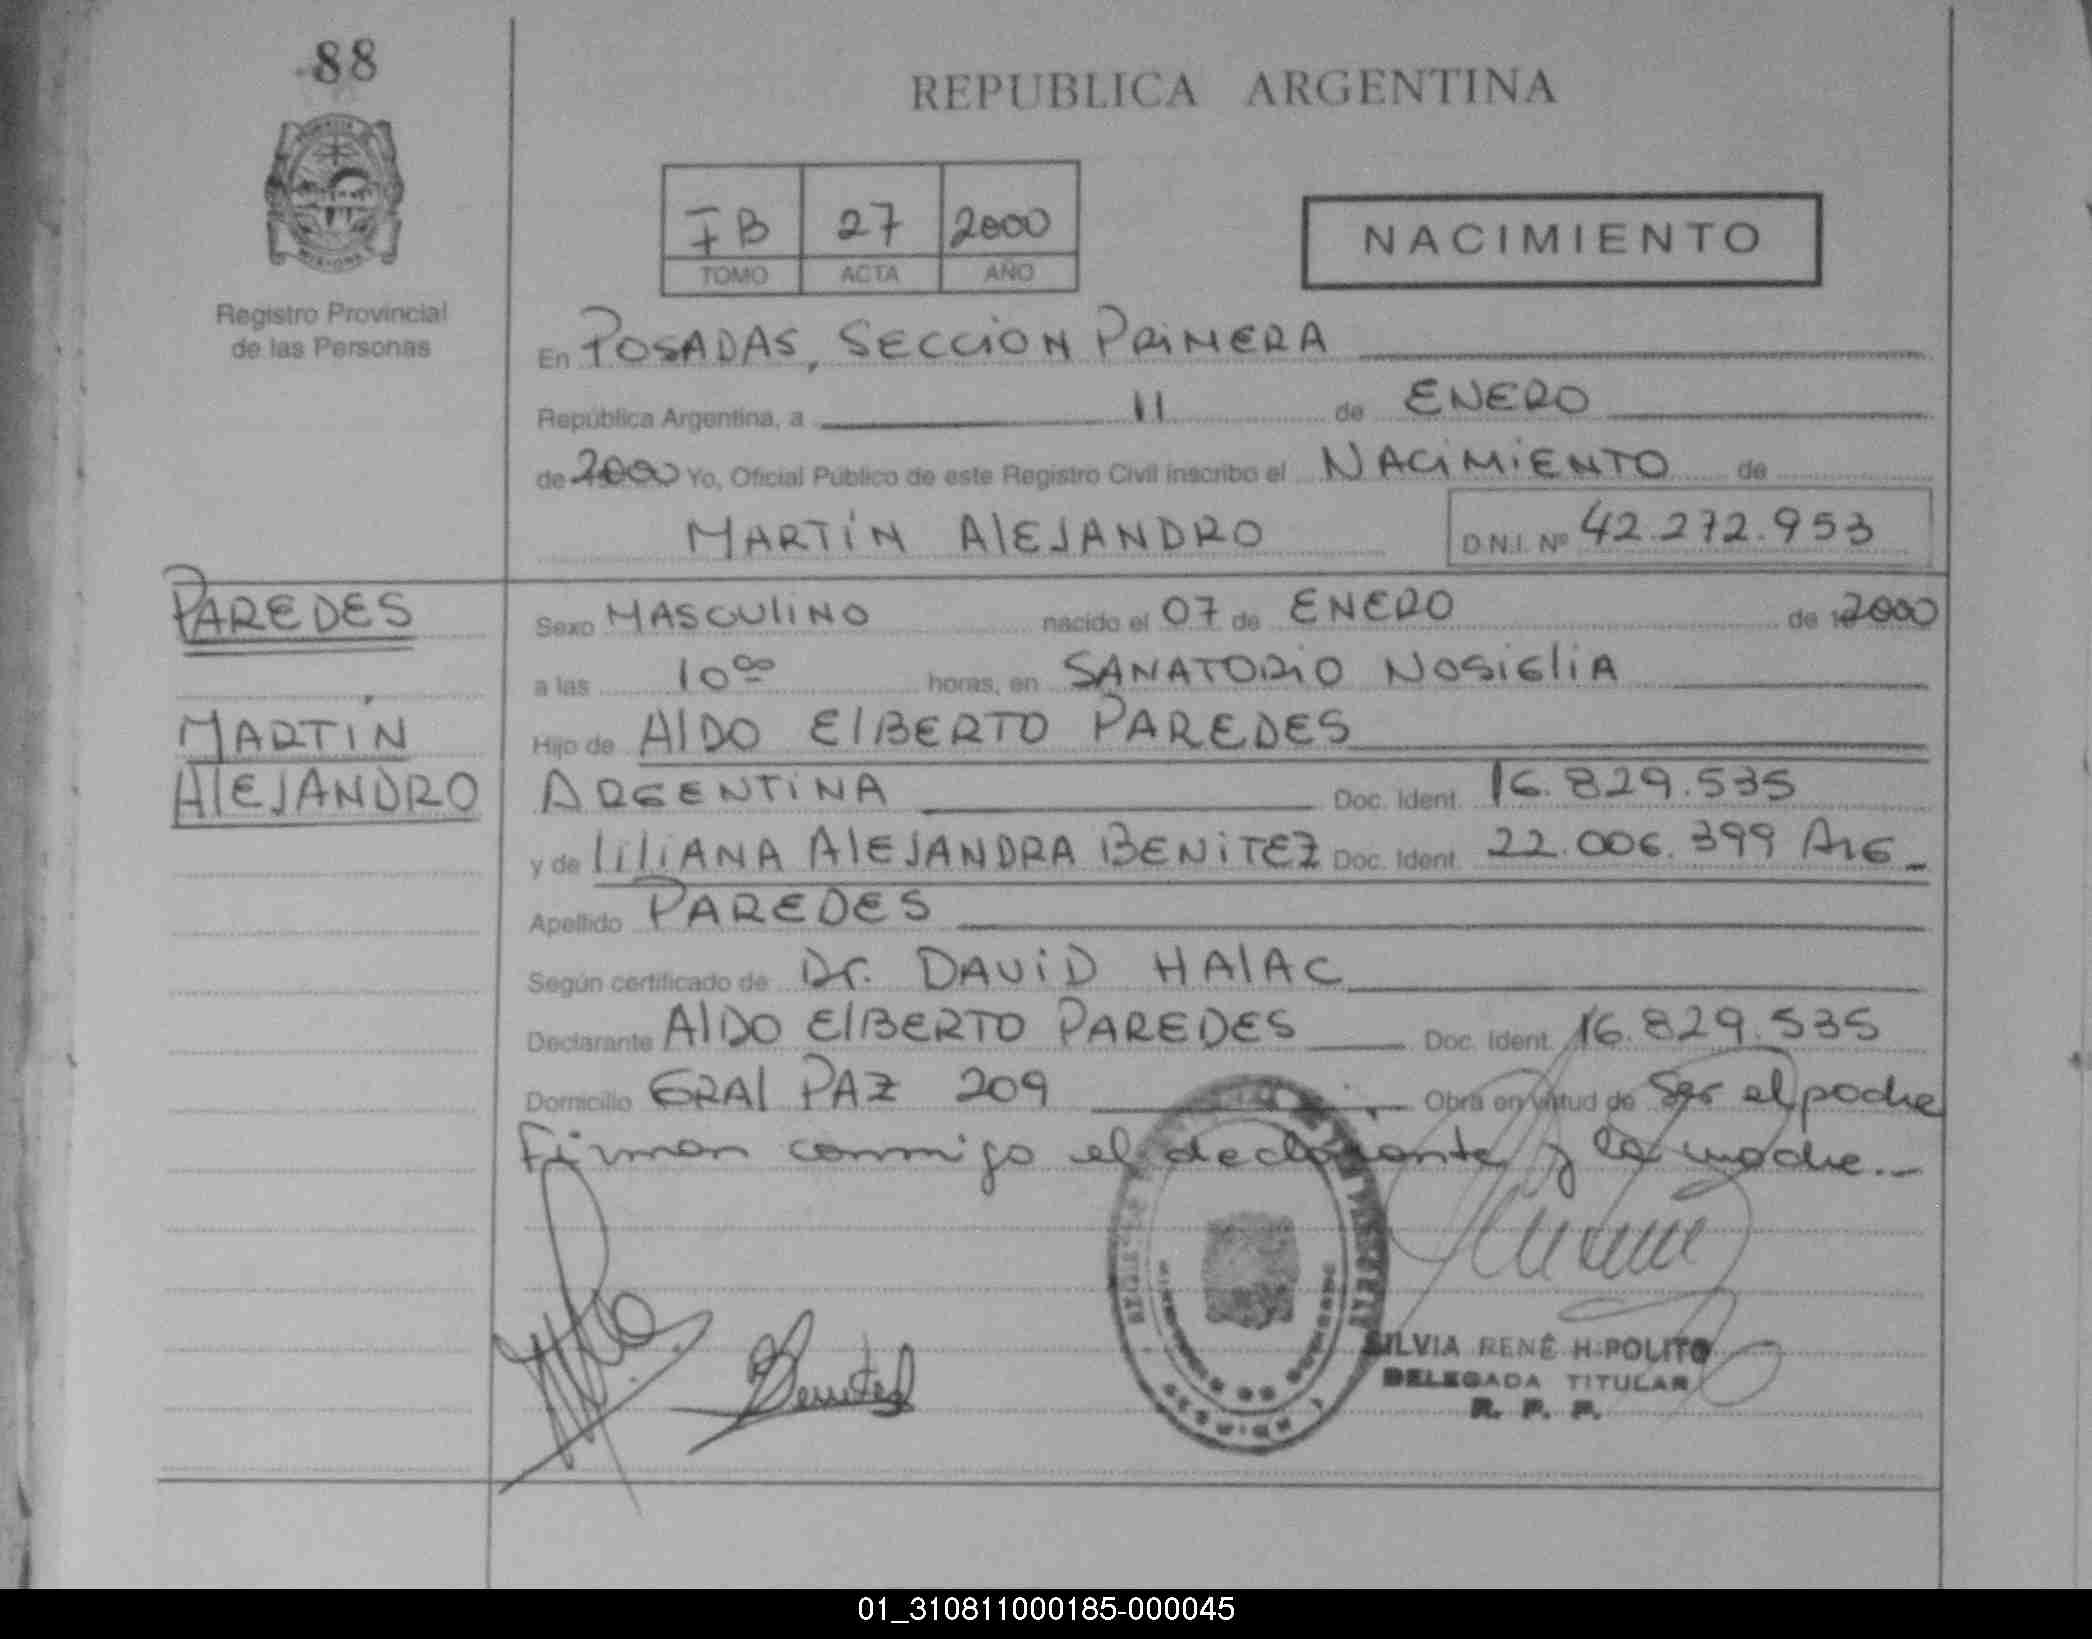 88
REPUBLICA ARGENTINA
IB 27 2000
TOMO ACTA AÑO
NACIMIENTO
Registro Provincial
de las Personas
En POSADAS, SECCION PRIMERA
República Argentina, a 11 de ENERO
de 2000 Yo, Oficial Público de este Registro Civil inscribo el NACIMIENTO de
MARTÍN AlEJANDRO D.N.I. Nº 42.272.953
PAREDES
MARTÍN
AlEJANDRO
Sexo MASCUliNO nacido el 07 de ENERO de 2000
a las 10 00 horas, en SANATORIO NOSIGliA
Hijo de AlDO ElBERTO PAREDES
ARGENTINA Doc. Ident. 16.829.535
y de liliANA AlEJANDRA BENITEZ Doc. Ident. 22.006.399 ArG
Apellido PAREDES
Según certificado de Dr. DAVID HAlAC
Declarante AlDO ElBERTO PAREDES Doc. Ident. 16.829.535
Domicilio GRAl PAZ 209 Obra en virtud de Ser el padre
Firman conmigo el declarante y la madre.-
Benitez
SILVIA RENÉ HIPOLITO
DELEGADA TITULAR
R. P. P.
01_310811000185-000045